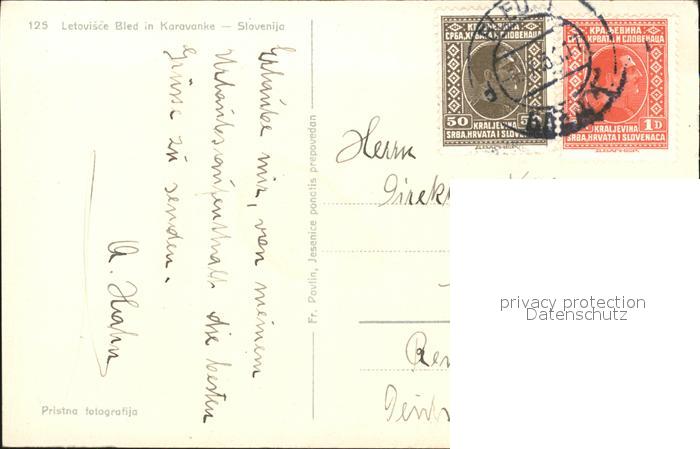 125 Letovišče Bled in Karavanke — Slovenija
Erlaube mir, von meinem
Urlaubsaufenthalt die besten
Grüsse zu senden.
A. Hahn
Pristna fotografija
Fr. Pavlin, Jesenice ponatis prepovedan
КРАЉЕВИНА
СРБА, ХРВАТА И СЛОВЕНАЦА
50
KRALJEVINA
SRBA, HRVATA I SLOVENACA
КРАЉЕВИНА
СРБА, ХРВАТА И СЛОВЕНАЦА
1D
KRALJEVINA
SRBA, HRVATA I SLOVENACA
BLED
Herrn
Direkt
privacy protection
Datenschutz